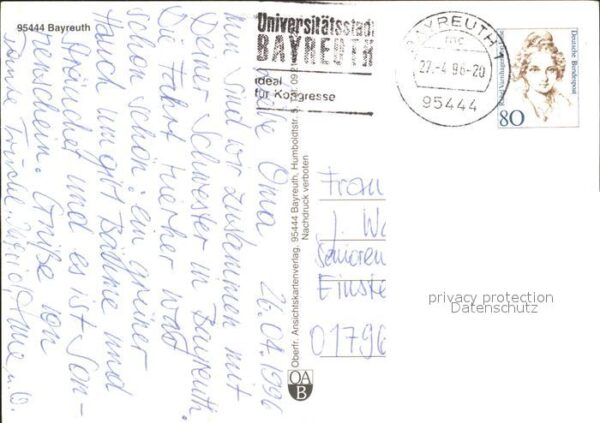 95444 Bayreuth
Universitätsstadt
BAYREUTH
ideal
für Kongresse
BAYREUTH 1
mc
27.-4.96-20
95444
Deutsche Bundespost
80
Oma 26.04.1996
nun sind wir zusammen mit
Deiner Schwester in Bayreuth.
Die Fahrt hierher war
schon schön: ein grüner
Hauch umgibt Bäume und
Sträucher und es ist Son-
nenschein. Grüße von
Oberfr. Ansichtskartenverlag, 95444 Bayreuth, Humboldtstr.
Nachdruck verboten
OA
B
Frau
J. Wa
Senioren
Einste
01796
privacy protection
Datenschutz